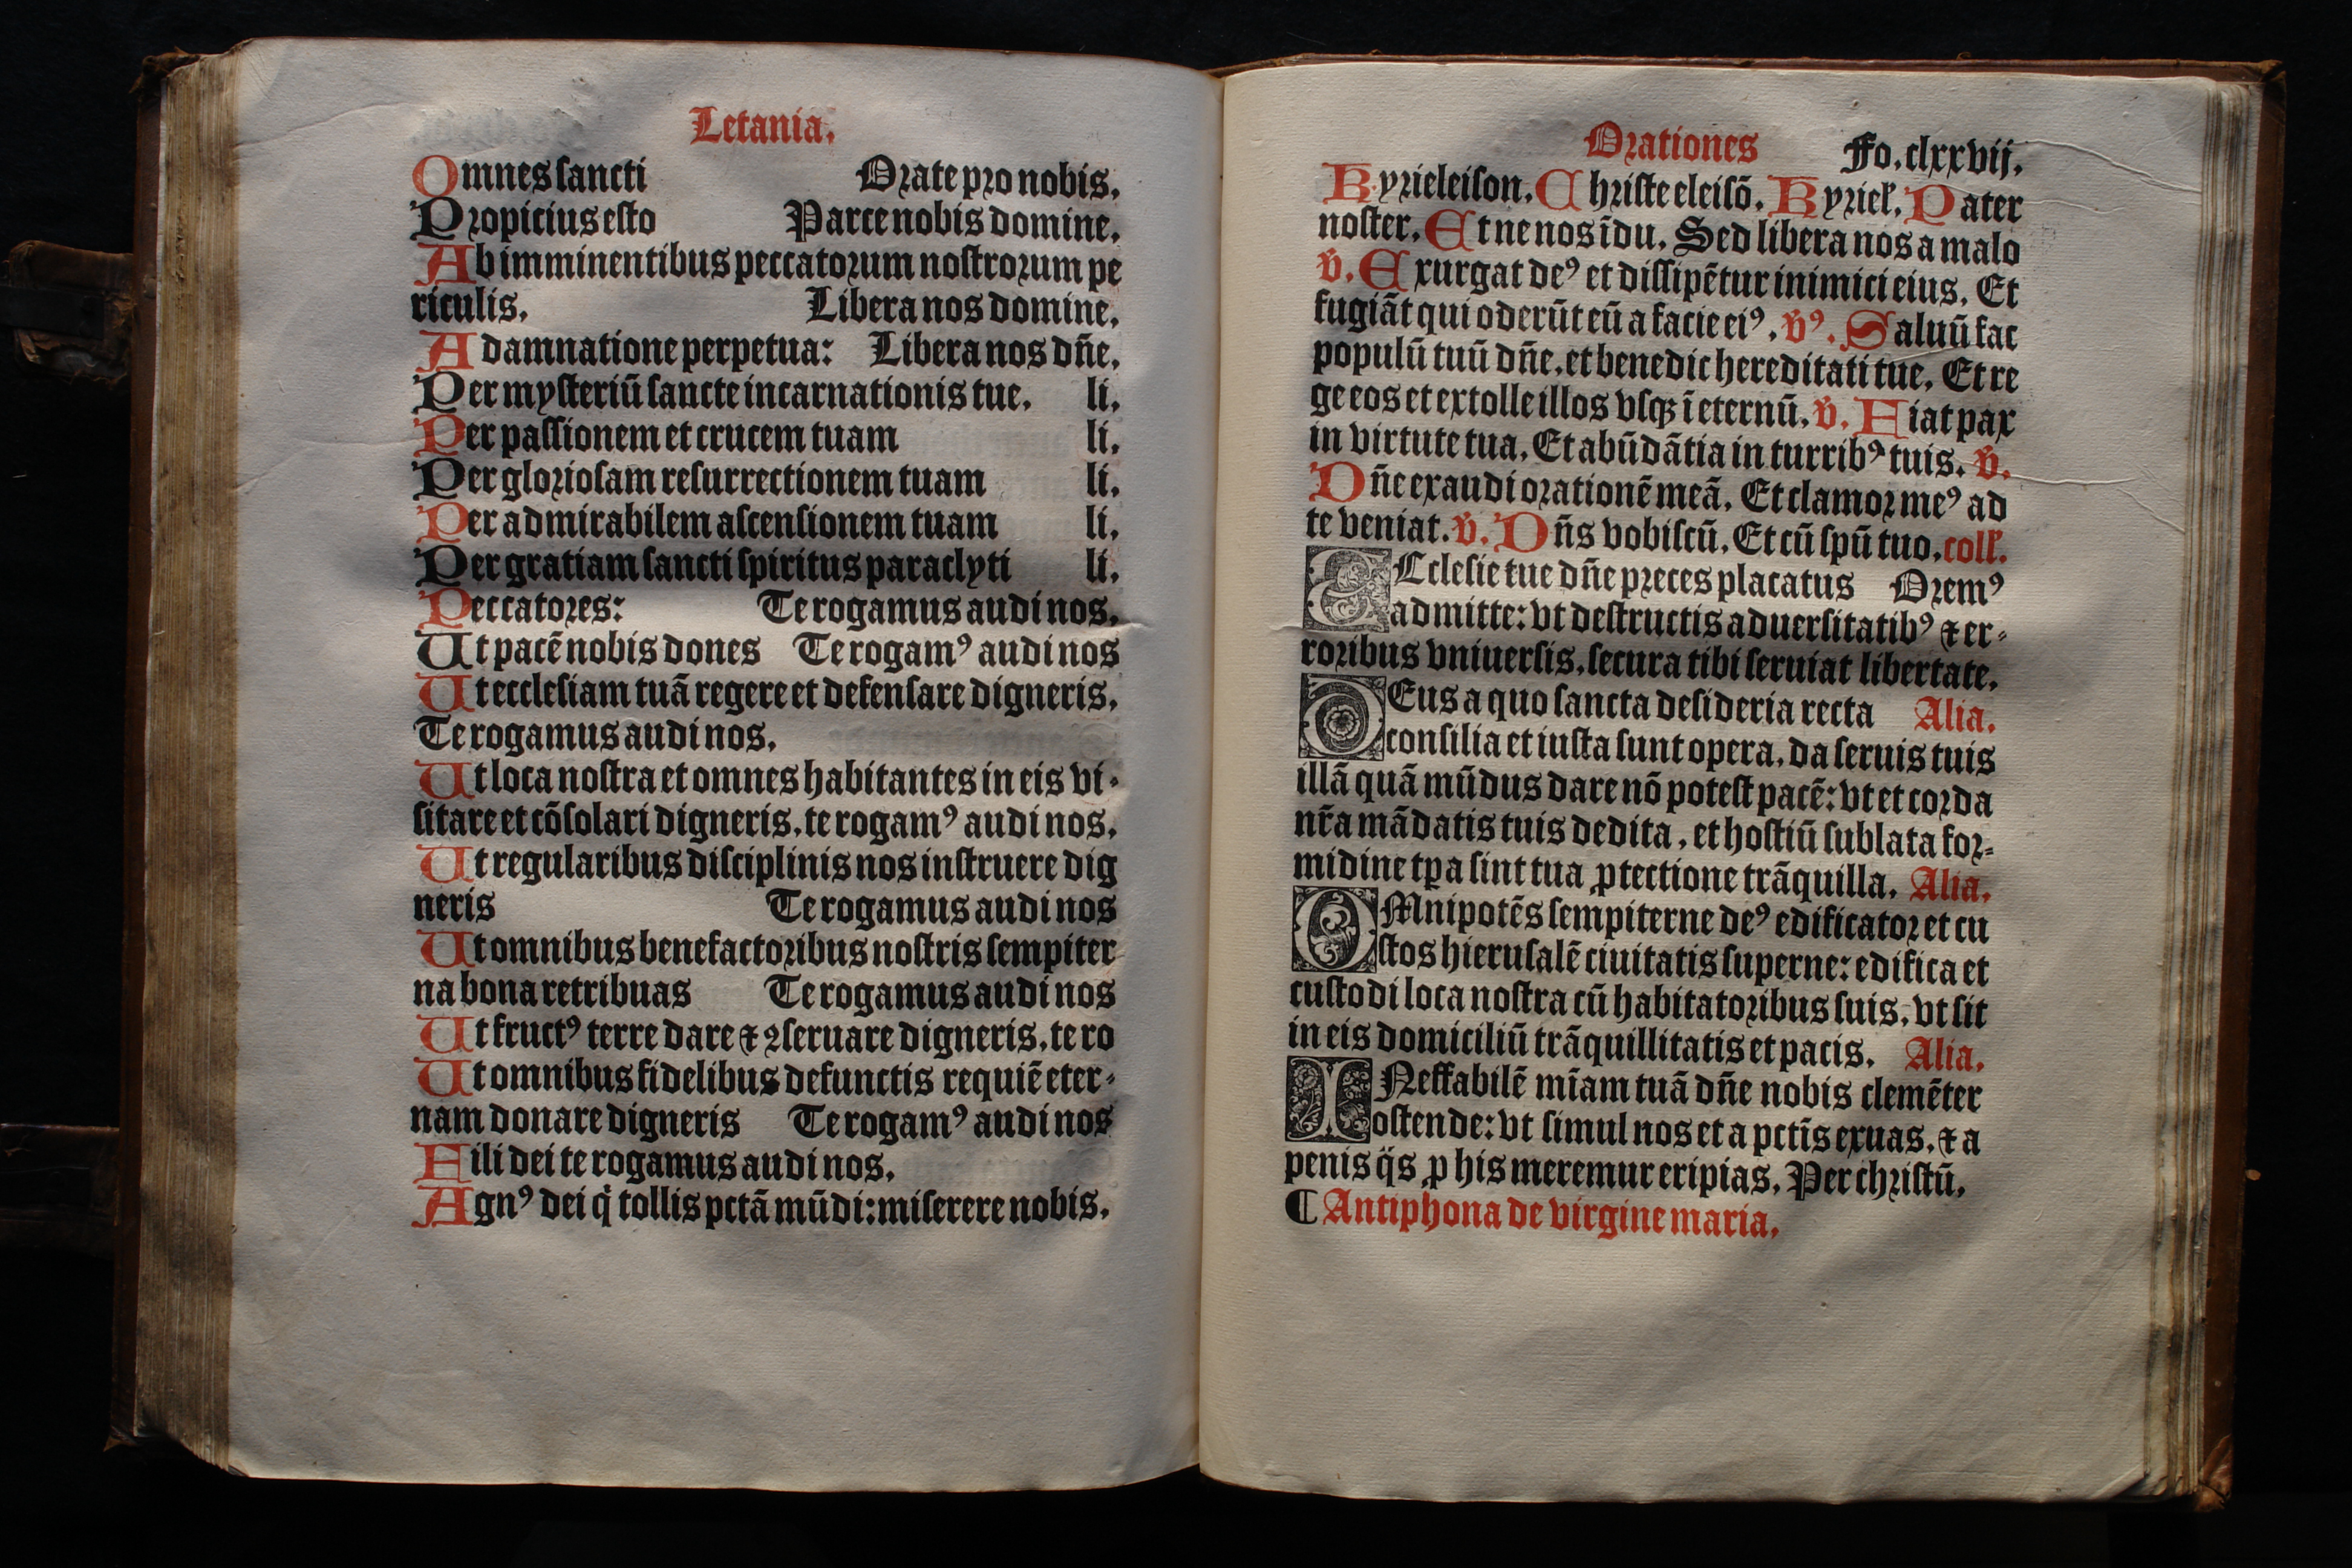 Letania.
Omnes sancti Orate pro nobis.
Propicius esto Parce nobis domine.
Ab imminentibus peccatorum nostrorum pe
riculis. Libera nos domine.
A damnatione perpetua: Libera nos dñe.
Per mysteriũ sancte incarnationis tue. li.
Per passionem et crucem tuam li.
Per gloriosam resurrectionem tuam li.
Per admirabilem ascensionem tuam li.
Per gratiam sancti spiritus paraclyti li.
Peccatores: Te rogamus audi nos.
Ut pacẽ nobis dones Te rogamꝰ audi nos
Ut ecclesiam tuã regere et defensare digneris.
Te rogamus audi nos.
Ut loca nostra et omnes habitantes in eis vi-
sitare et cõsolari digneris. te rogamꝰ audi nos.
Ut regularibus disciplinis nos instruere dig
neris Te rogamus audi nos
Ut omnibus benefactoribus nostris sempiter
na bona retribuas Te rogamus audi nos
Ut fructꝰ terre dare ⁊ ꝯseruare digneris. te ro
Ut omnibus fidelibus defunctis requiẽ eter-
nam donare digneris Te rogamꝰ audi nos
Fili dei te rogamus audi nos.
Agnꝰ dei q̇ tollis pctã mũdi: miserere nobis.
Orationes Fo. clxxvij.
Kyrieleison. Christe eleisõ. Kyriel. Pater
noster. Et ne nos ĩdu. Sed libera nos a malo
v̄. Exurgat deꝰ et dissipẽtur inimici eius. Et
fugiãt qui oderũt eũ a facie eiꝰ. v̄ꝰ. Saluũ fac
populũ tuũ dñe. et benedic hereditati tue. Et re
ge eos et extolle illos vsqꝫ ĩ eternũ. v̄. Fiat pax
in virtute tua. Et abũdãtia in turribꝰ tuis. v̄.
Dñe exaudi orationẽ meã. Et clamor meꝰ ad
te veniat. v̄. Dñs vobiscũ. Et cũ spũ tuo. coll.
ECclesie tue dñe preces placatus Oremꝰ
admitte: vt destructis aduersitatibꝰ ⁊ er-
roribus vniuersis. secura tibi seruiat libertate.
DEus a quo sancta desideria recta Alia.
consilia et iusta sunt opera. da seruis tuis
illã quã mũdus dare nõ potest pacẽ: vt et corda
nr̃a mãdatis tuis dedita, et hostiũ sublata for-
midine tpa sint tua ꝓtectione trãquilla. Alia.
OMnipotẽs sempiterne deꝰ edificator et cu
stos hierusalẽ ciuitatis superne: edifica et
custodi loca nostra cũ habitatoribus suis. vt sit
in eis domiciliũ trãquillitatis et pacis. Alia.
INeffabilẽ mĩam tuã dñe nobis clemẽter
ostende: vt simul nos et a pctĩs exuas. ⁊ a
penis q̃s ꝓ his meremur eripias. Per christũ.
¶ Antiphona de virgine maria.